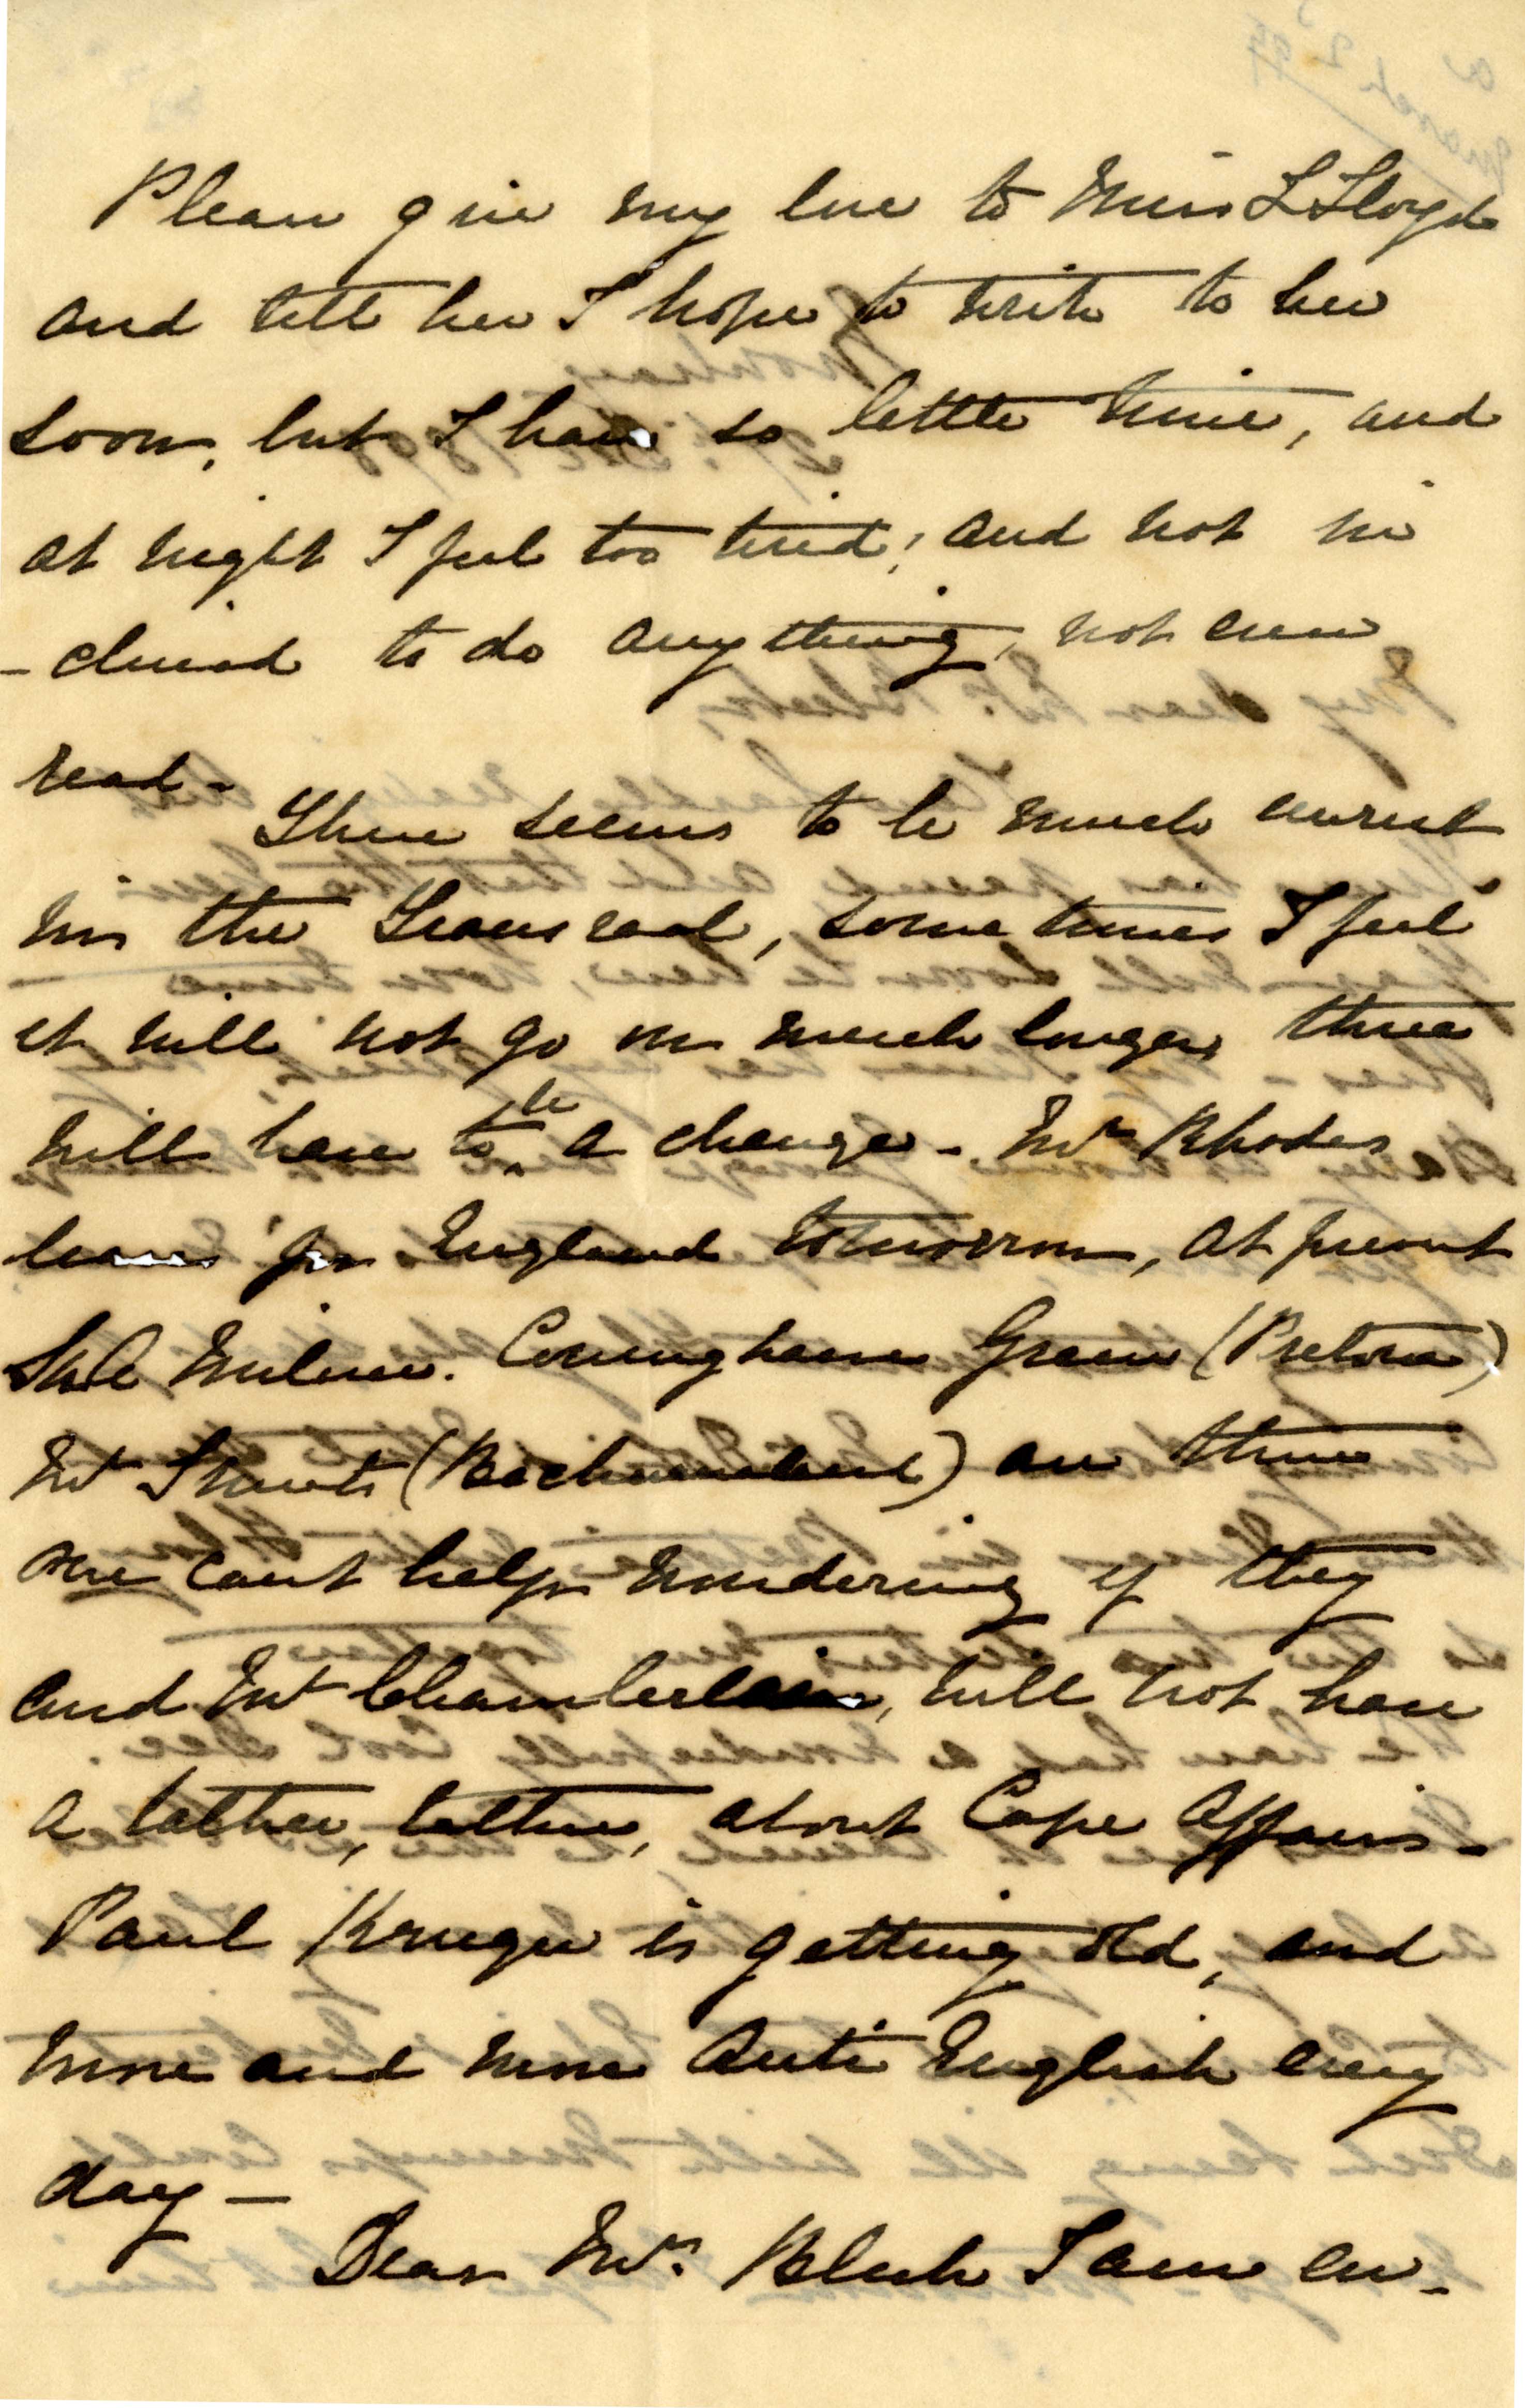 Please give my love to Miss L Lloyd
and tell her I hope to write to her
soon, but I have so little time, and
at night I feel too tired, and not in
-clined to do anything, not even
read -
There seems to be much unrest
in the Transvaal, some times I feel
it will not go on much longer, there
will have to be a change - Mr Rhodes
leaves for England tomorrow, at present
Sir A Milner. Conyngham Green (Pretoria)
Mr (Bechuanaland) are there
one cant help wondering if they
and Mr Chamberlain, will not have
a talkee, talkee, about Cape Affairs -
Paul Kruger is getting old, and
more and more Anti English every
day -
Dear Mrs. Bleek I am en-